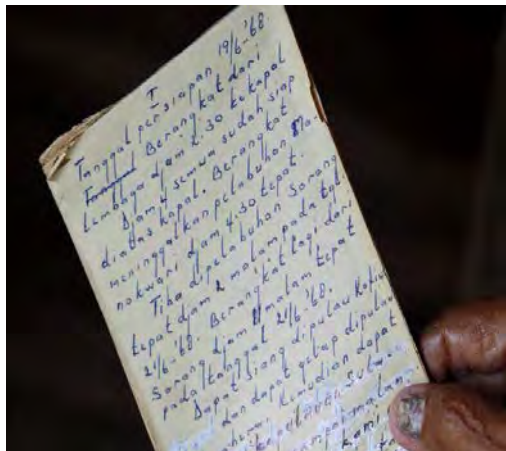 I
Tanggal persiapan 19/6-'68.
Tanggal Berangkat dari
Lembaga djam 2.30 ke kapal
Djam 4 semua sudah siap
diatas kapal. Berangkat
meninggalkan pelabuhan Ma-
nokwari djam 4.30 tepat.
Tiba dipelabuhan Sorong
tepat djam 2 malam pada tgl.
21/6-'68. Berangkat lagi dari
Sorong djam malam tepat
pada tanggal 21/6 '68.
Dapat siang dipulau
dan dapat gelap dipulau
kemudian dapat
malam
kami